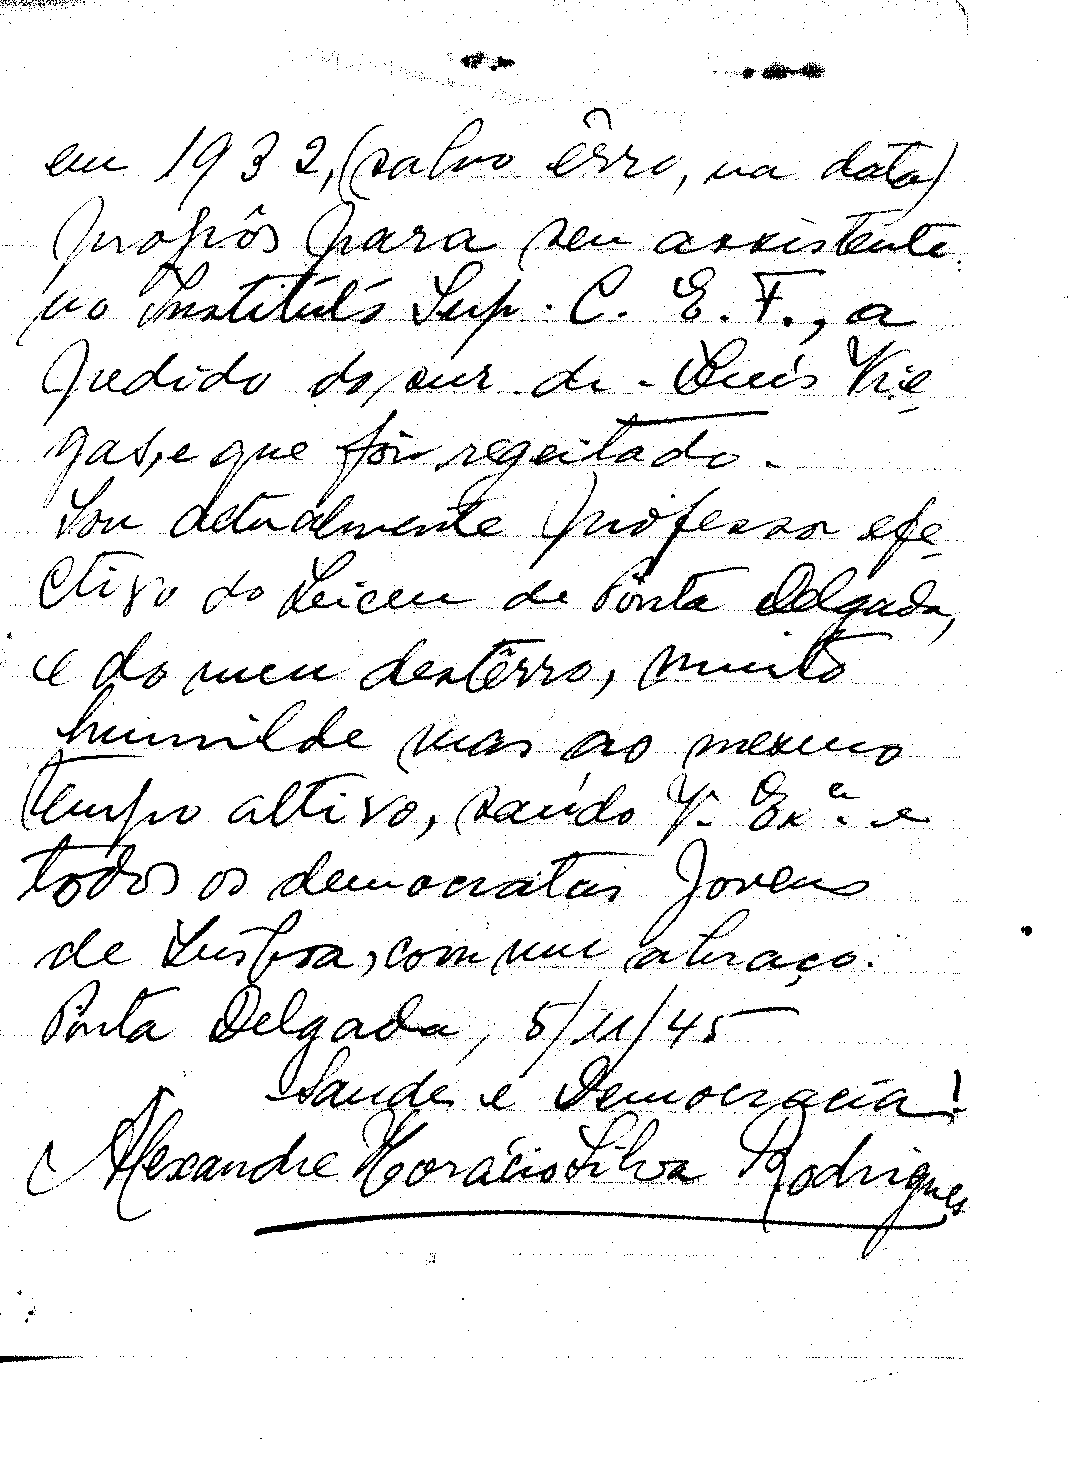 em 1932, (salvo êrro, na data)
propôs para seu assistente
no Instituto Sup. C. E. F., a
pedido do sur. dr. Luís Vie
gas, e que foi regeitado.
Sou actualmente professor efe-
ctivo do Liceu de Ponta Delgada,
e do meu destêrro, muito
humilde mas ao mesmo
tempo altivo, saúdo V. Exª. e
todos os democratas jovens
de Lisboa, com um abraço.
Ponta Delgada, 5/11/45
Saude e Democracia!
Alexandre Horácio Silva Rodrigues